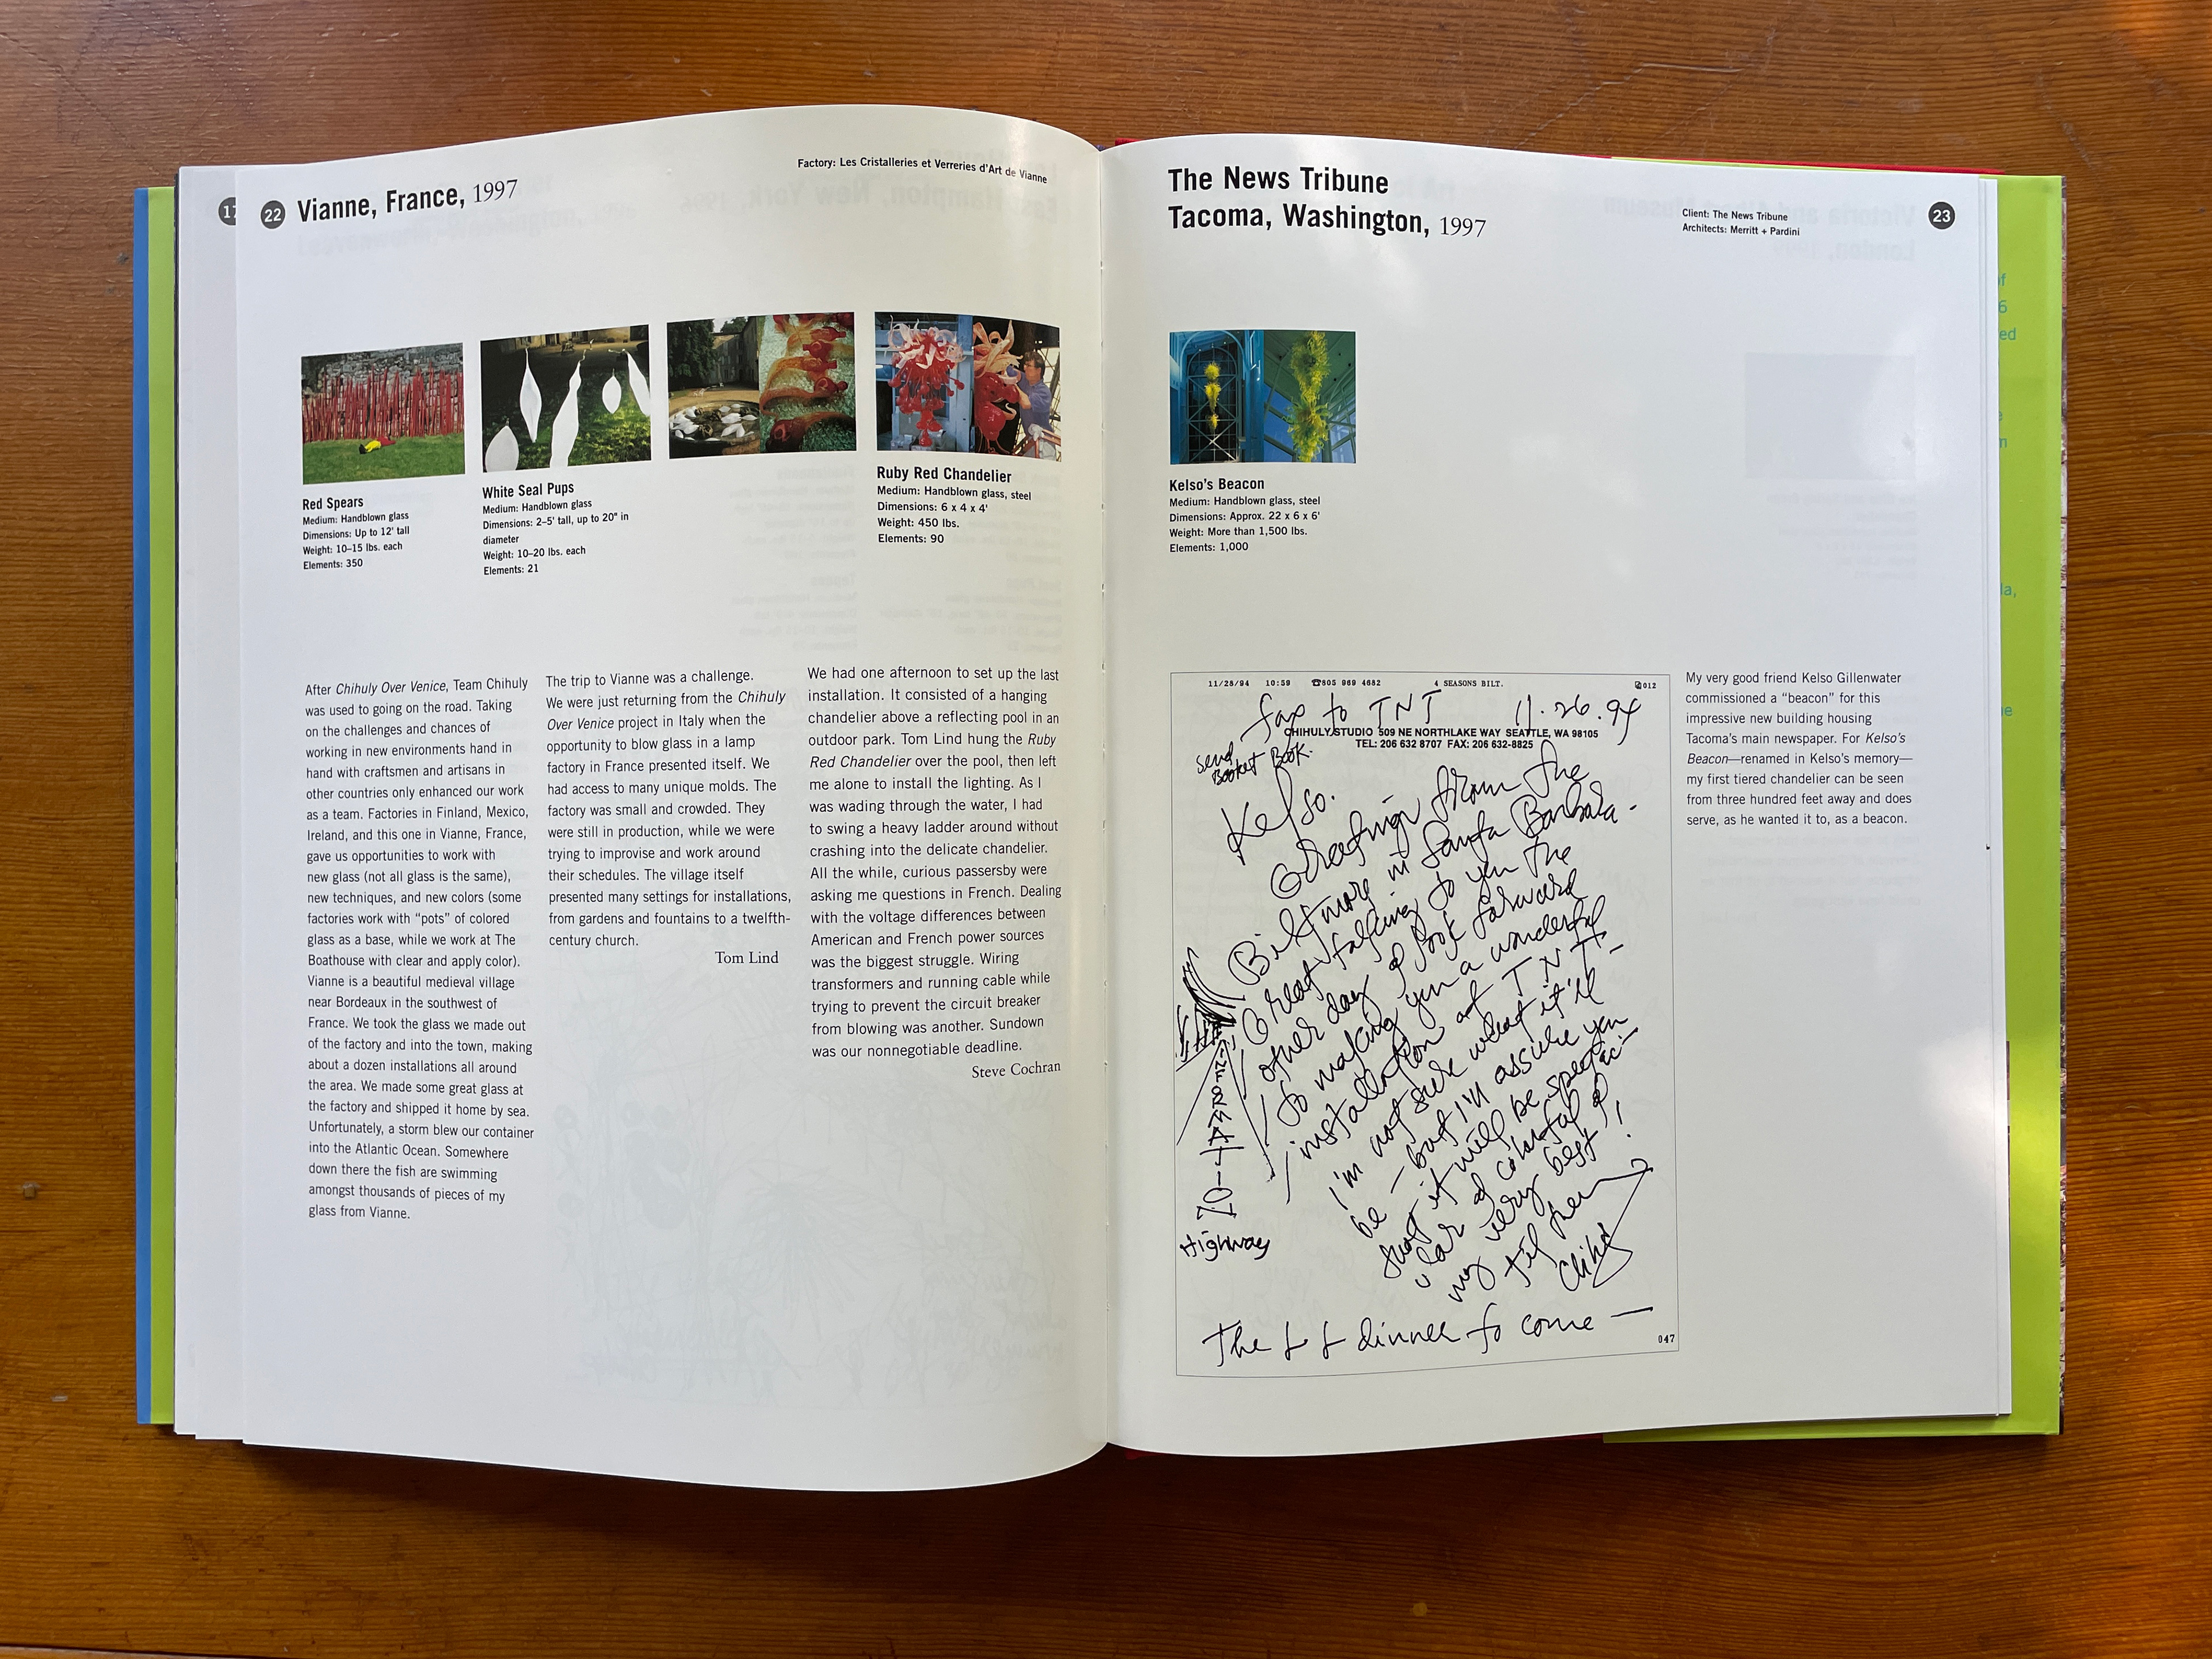 22 Vianne, France, 1997
Factory: Les Cristalleries et Verreries d'Art de Vianne
Red Spears
Medium: Handblown glass
Dimensions: Up to 12' tall
Weight: 10–15 lbs. each
Elements: 350
White Seal Pups
Medium: Handblown glass
Dimensions: 2–5' tall, up to 20" in
diameter
Weight: 10–20 lbs. each
Elements: 21
Ruby Red Chandelier
Medium: Handblown glass, steel
Dimensions: 6 x 4 x 4'
Weight: 450 lbs.
Elements: 90
After Chihuly Over Venice, Team Chihuly
was used to going on the road. Taking
on the challenges and chances of
working in new environments hand in
hand with craftsmen and artisans in
other countries only enhanced our work
as a team. Factories in Finland, Mexico,
Ireland, and this one in Vianne, France,
gave us opportunities to work with
new glass (not all glass is the same),
new techniques, and new colors (some
factories work with “pots” of colored
glass as a base, while we work at The
Boathouse with clear and apply color).
Vianne is a beautiful medieval village
near Bordeaux in the southwest of
France. We took the glass we made out
of the factory and into the town, making
about a dozen installations all around
the area. We made some great glass at
the factory and shipped it home by sea.
Unfortunately, a storm blew our container
into the Atlantic Ocean. Somewhere
down there the fish are swimming
amongst thousands of pieces of my
glass from Vianne.
The trip to Vianne was a challenge.
We were just returning from the Chihuly
Over Venice project in Italy when the
opportunity to blow glass in a lamp
factory in France presented itself. We
had access to many unique molds. The
factory was small and crowded. They
were still in production, while we were
trying to improvise and work around
their schedules. The village itself
presented many settings for installations,
from gardens and fountains to a twelfth-
century church.
Tom Lind
We had one afternoon to set up the last
installation. It consisted of a hanging
chandelier above a reflecting pool in an
outdoor park. Tom Lind hung the Ruby
Red Chandelier over the pool, then left
me alone to install the lighting. As I
was wading through the water, I had
to swing a heavy ladder around without
crashing into the delicate chandelier.
All the while, curious passersby were
asking me questions in French. Dealing
with the voltage differences between
American and French power sources
was the biggest struggle. Wiring
transformers and running cable while
trying to prevent the circuit breaker
from blowing was another. Sundown
was our nonnegotiable deadline.
Steve Cochran
The News Tribune
Tacoma, Washington, 1997
Client: The News Tribune
Architects: Merritt + Pardini
23
Kelso's Beacon
Medium: Handblown glass, steel
Dimensions: Approx. 22 x 6 x 6'
Weight: More than 1,500 lbs.
Elements: 1,000
11/28/94 10:59 ☎805 969 4682 4 SEASONS BILT. 012
fax to TNT 11.26.94
CHIHULY STUDIO 509 NE NORTHLAKE WAY SEATTLE, WA 98105
TEL: 206 632 8707 FAX: 206 632-8825
send
Book.
Kelso.
Greetings from the
Biltmore in Santa Barbara -
Great talking to you the
other day I look forward
to making you a wonderful
installation at TNT -
I'm not sure what it'll
be - but I'll assure you
that it will be spectac-
ular & colorful &
my very best!
til then
Chihuly
INFORMATION
Highway
The dinner to come —
047
My very good friend Kelso Gillenwater
commissioned a “beacon” for this
impressive new building housing
Tacoma's main newspaper. For Kelso's
Beacon—renamed in Kelso's memory—
my first tiered chandelier can be seen
from three hundred feet away and does
serve, as he wanted it to, as a beacon.